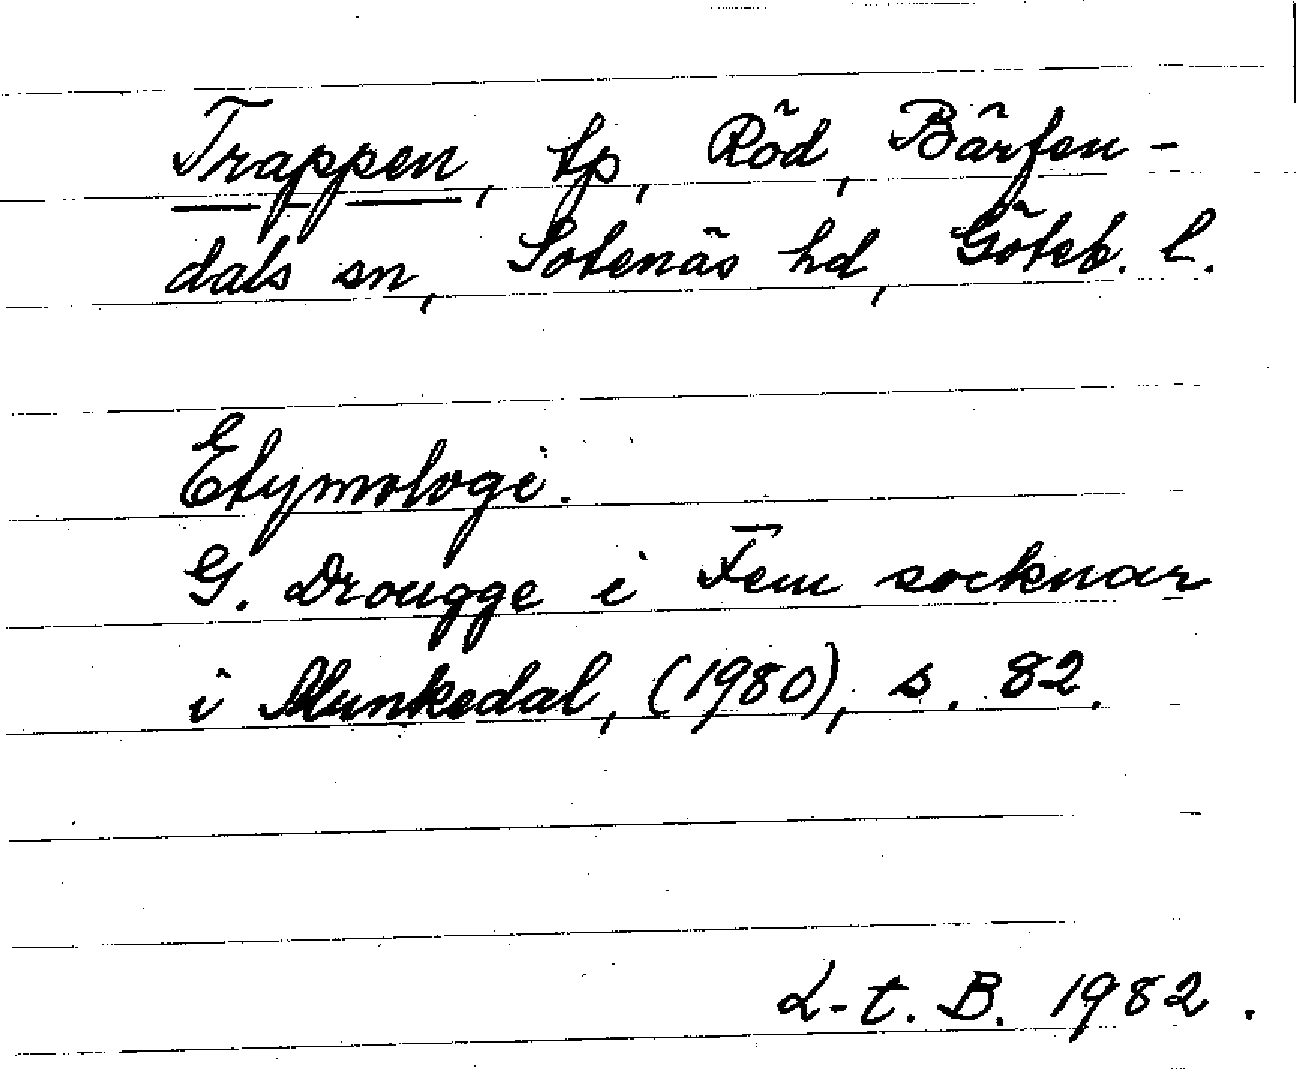 Trappen, tp, Röd, Bärfen-
dals sn, Sotenäs hd, Göteb. l.
Etymologi.
G. Drougge i Fem socknar
i Munkedal, (1980), s. 82.
L-t. B. 1982.